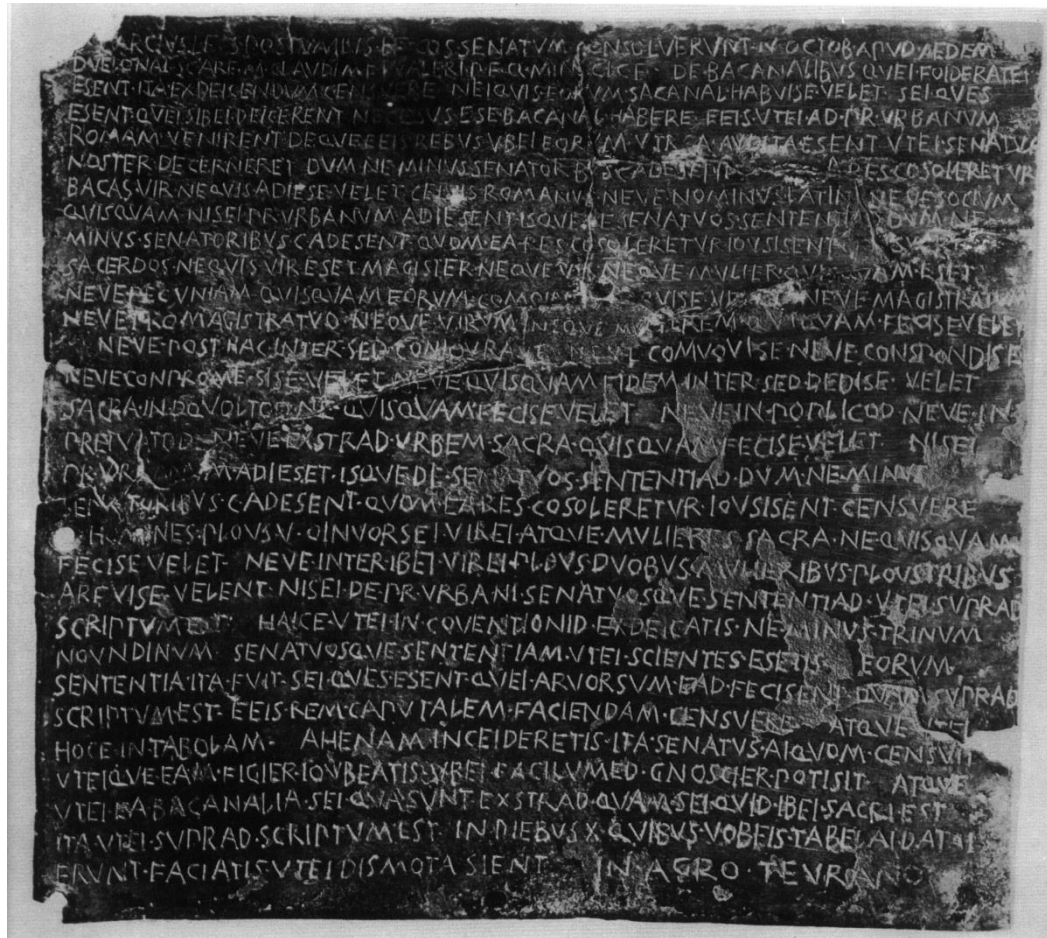 MARCIVS·L·F·S·POSTVMIVS·L·F·COS·SENATVM·CONSOLVERVNT·N·OCTOB·APVD·AEDEM
DVELONAI·SC·ARF·M·CLAVDI·M·F·L·VALERI·P·F·Q·MINVCI·C·F· DE·BACANALIBVS·QVEI·FOIDERATEI
ESENT·ITA·EXDEICENDVM·CENSVERE· NEIQVIS·EORVM·SACANAL·HABVISE·VELET· SEIQVES
ESENT·QVEI·SIBEI·DEICERENT·NECESVS·ESE·BACANAL·HABERE·EEIS·VTEI·AD·PR·VRBANVM
ROMAM·VENIRENT·DEQVE·EEIS·REBVS·VBEI·EORVM·VTR A·AVDITA·ESENT·VTEI·SENATVS
NOSTER·DECERNERET· DVM·NE·MINVS·SENATORBVS·C·ADESENT RES·COSOLERETVR
BACAS·VIR·NEQVIS·ADIESE·VELET·CEIVIS·ROMANVS·NEVE·NOMINVS·LATINI·NEVE·SOCIVM
QVISQVAM·NISEI·PR·VRBANVM·ADIESENT·ISQVE·DE·SENATVOS·SENTENTIAD·DVM·NE
MINVS·SENATORIBVS·C·ADESENT·QVOM·EA·RES·COSOLERETVR·IOVSISENT·
SACERDOS·NEQVIS·VIR·ESET·MAGISTER·NEQVE·VIR·NEQVE·MVLIER·QVISQVAM·ESET
NEVE·PECVNIAM·QVISQVAM·EORVM·COMOINEM· VELET·NEVE·MAGISTRATVM
NEVE·PRO·MAGISTRATVD·NEQVE·VIRVM·NEQVE·MVLIEREM·QVIQVAM·FECISE·VELET
NEVE·POST·HAC·INTER·SED·CONIOVRA NEVE·COMVOVISE·NEVE·CONSPONDISE
NEVE·CONPROMESISE·VELET·NEVE·QVISQVAM·FIDEM·INTER·SED·DEDISE· VELET
SACRA·IN·DQVOLTOD·NE·QVISQVAM·FECISE·VELET· NEVE·IN·POPLICOD·NEVE·IN
PREIVATOD·NEVE·EXSTRAD·VRBEM·SACRA·QVISQVAM·FECISE·VELET· NISEI
PR·VRBANVM·ADIESET·ISQVE·DE·SENATVOS·SENTENTIAD·DVM·NE·MINVS
SENATORIBVS·C·ADESENT·QVOM·EA·RES·COSOLERETVR·IOVSISENT·CENSVERE
HOMINES·PLOVS·V·OINVORSEI·VIREI·ATQVE·MVLIERES·SACRA·NE·QVISQVAM
FECISE·VELET· NEVE·INTER·IBEI·VIREI·PLOVS·DVOBVS·MVLIERIBVS·PLOVS·TRIBVS
ARFVISE·VELENT·NISEI·DE·PR·VRBANI·SENATVOSQVE·SENTENTIAD·VTEI·SVPRAD
SCRIPTVM·EST· HAICE·VTEI·IN·COVENTIONID·EXDEICATIS·NE·MINVS·TRINVM
NOVNDINVM· SENATVOSQVE·SENTENTIAM·VTEI·SCIENTES·ESETIS· EORVM·
SENTENTIA·ITA·FVIT·SEI·QVES·ESENT·QVEI·ARVORSVM·EAD·FECISENT·QVAM·SVPRAD
SCRIPTVM·EST·EEIS·REM·CAPVTALEM·FACIENDAM·CENSVERE·ATQVE·VTEI
HOCE·IN·TABOLAM· AHENAM·INCEIDERETIS·ITA·SENATVS·AIQVOM·CENSVIT
VTEIQVE·EAM·FIGIER·IOVBEATIS·VBEI·FACILVMED·GNOSCIER·POTISIT· ATQVE
VTEI·EA·BACANALIA·SEI·QVA·SVNT·EXSTRAD·QVAM·SEI·QVID·IBEI·SACRI·EST
ITA·VTEI·SVPRAD·SCRIPTVM·EST· IN·DIEBVS·X·QVIBVS·VOBEIS·TABELAI·DATAI
ERVNT·FACIATIS·VTEI·DISMOTA·SIENT· IN·AGRO·TEVRANO